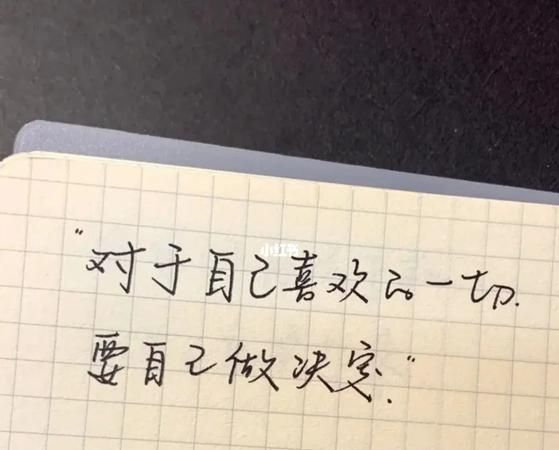 小红书
"对于自己喜欢的一切.
要自己做决定."